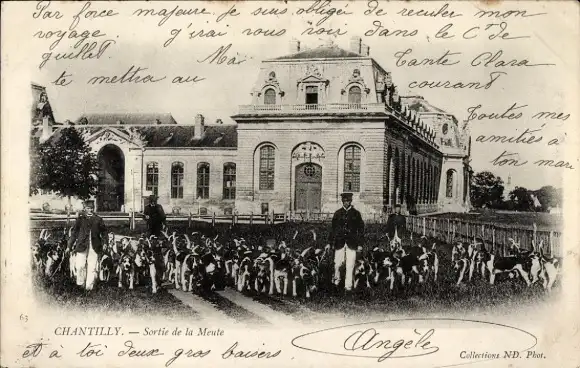 Par force majeure je suis obligée de reculer mon
voyage. J'irai vous voir dans le Ct de
Juillet. Ma Tante Clara
te mettra au courant
Toutes mes
amitiés à
ton mari
63 CHANTILLY. — Sortie de la Meute
et à toi deux gros baisers
Angèle
Collections ND. Phot.